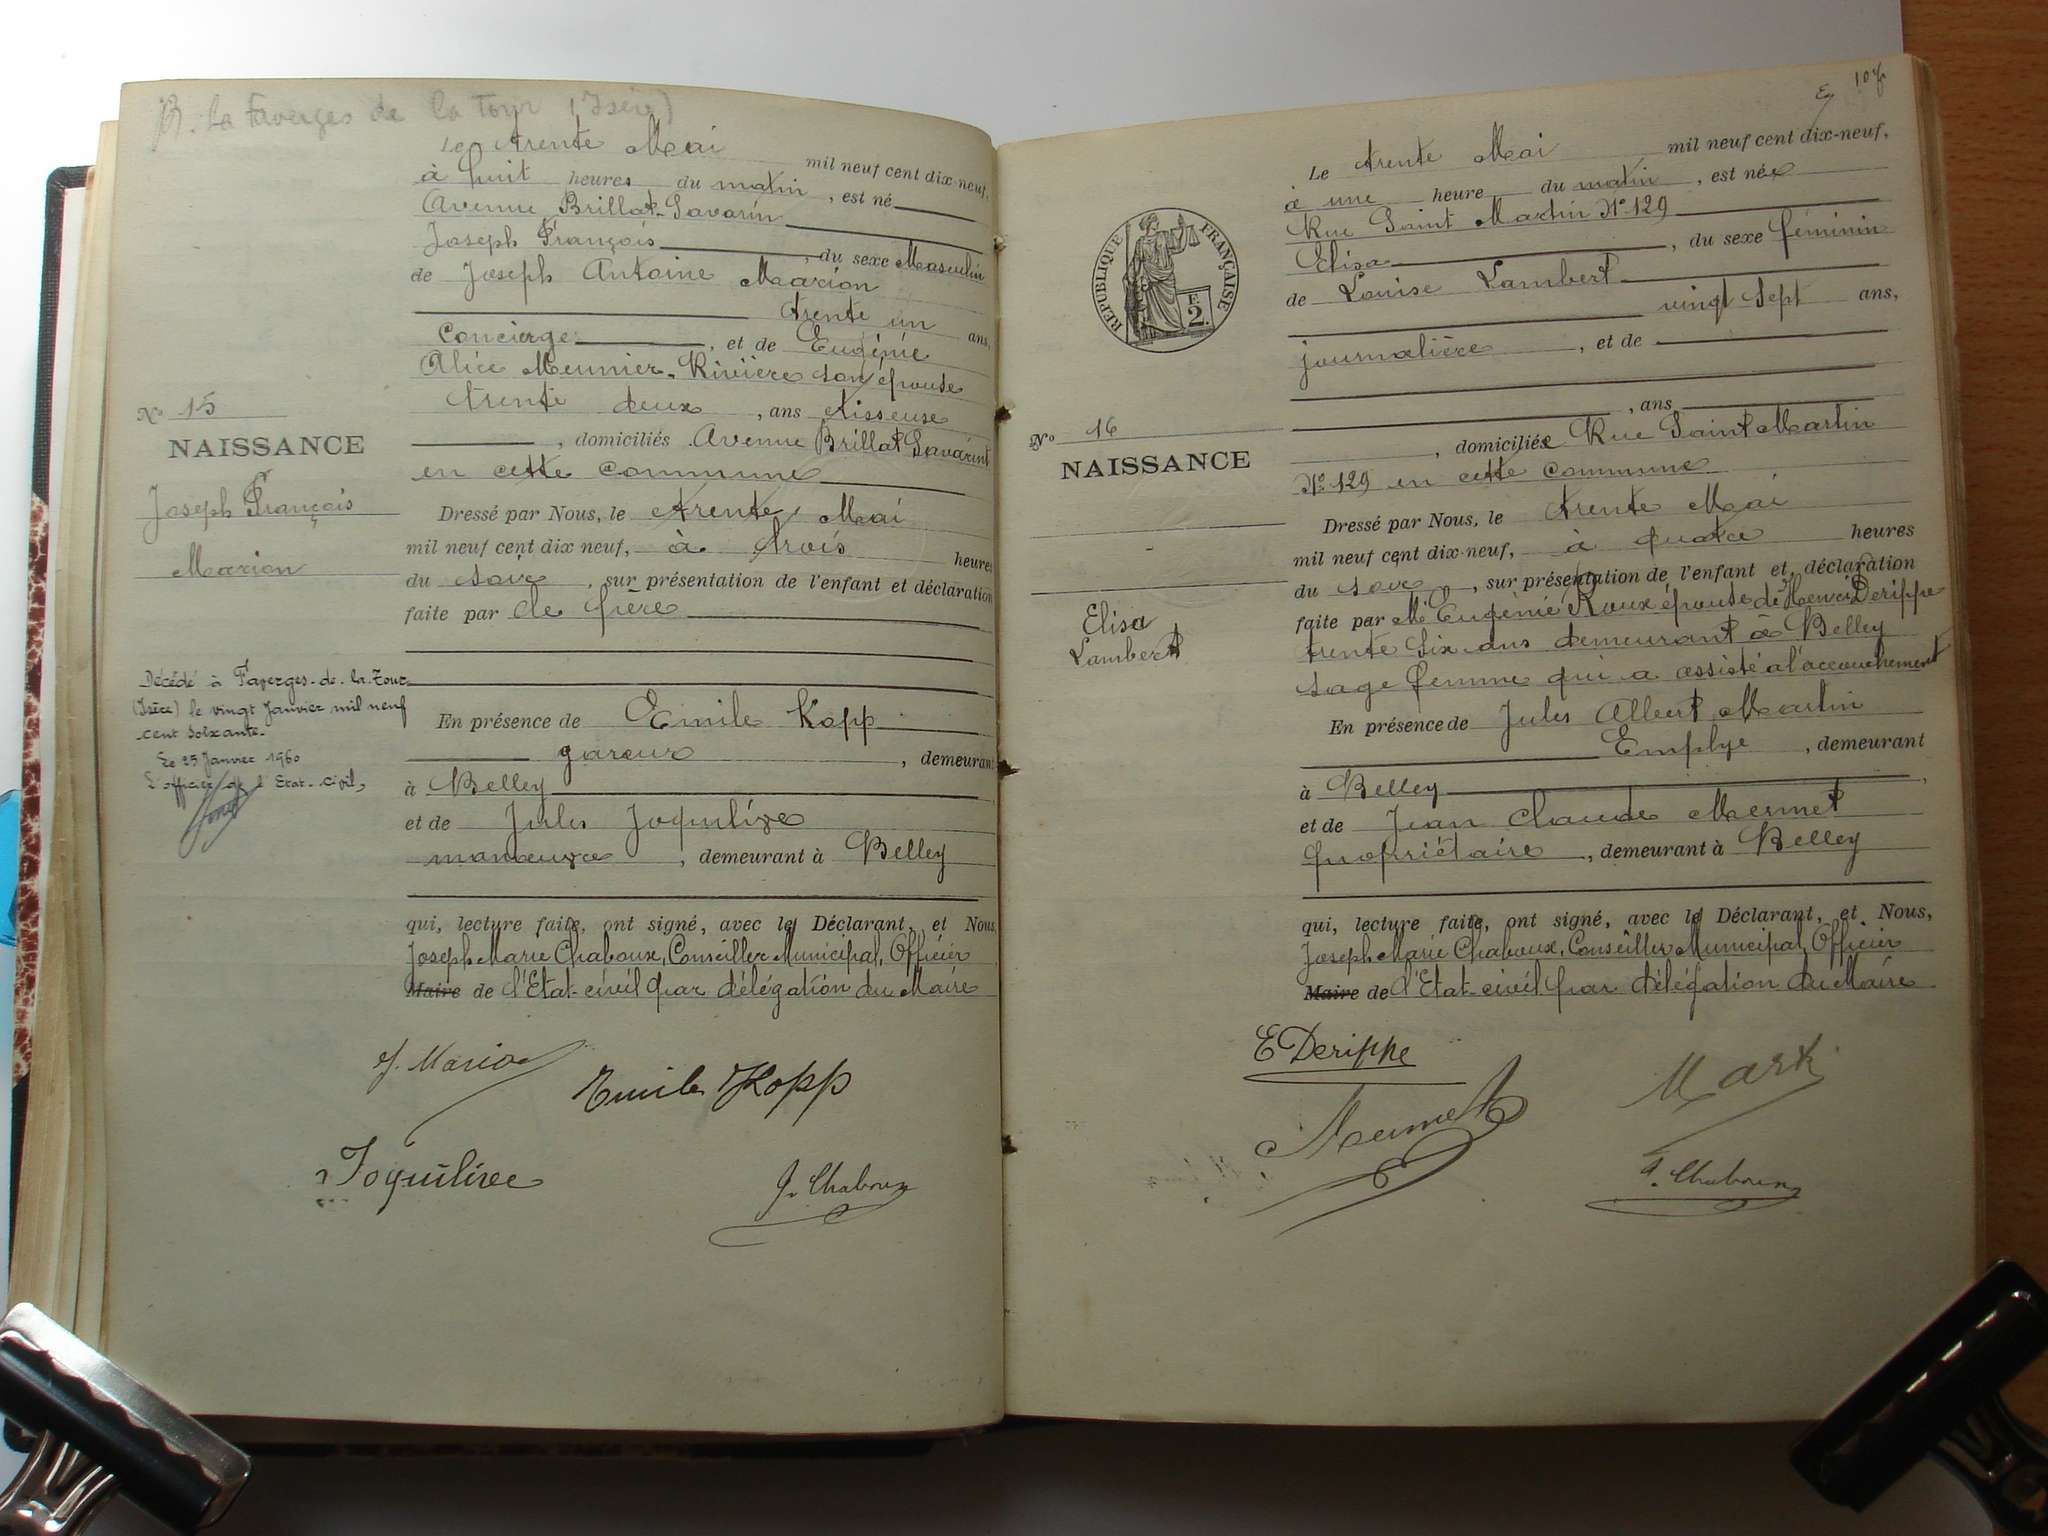 La Faverges de la Tour (Isère)
Le trente Mai mil neuf cent dix-neuf,
à huit heures du matin, est né
Avenue Brillat-Savarin
Joseph François, du sexe Masculin
de Joseph Antoine Marion
trente un ans,
Concierge, et de Eugénie
Alice Meunier-Rivière son épouse
trente deux, ans tisseuse
, domiciliés Avenue Brillat Savarint
en cette commune
Dressé par Nous, le trente Mai
mil neuf cent dix neuf, à trois heures
du soir, sur présentation de l'enfant et déclaration
faite par le père
En présence de Emile Kopp
gareur, demeurant
à Belley
et de Jules Joquilive
manœuvre, demeurant à Belley
qui, lecture faite, ont signé, avec le Déclarant, et Nous,
Joseph Marie Chaboux, Conseiller Municipal, Officier
Maire de l'Etat-civil par délégation du Maire
J. Marion
Emile Kopp
Joquilive
J. Chaboux
No 15
NAISSANCE
Joseph François
Marion
Décédé à Faverges-de-la-Tour
(Isère) le vingt Janvier mil neuf
cent soixante.
Le 25 Janvier 1960
L'officier de l'Etat-Civil,
Le trente Mai mil neuf cent dix-neuf,
à une heure du matin, est née
Rue Saint Martin No 129
Elisa, du sexe féminin
de Louise Lambert
vingt sept ans,
journalière, et de
, ans
, domiciliée Rue Saint Martin
No 129 en cette commune
Dressé par Nous, le trente Mai
mil neuf cent dix-neuf, à quatre heures
du soir, sur présentation de l'enfant et déclaration
faite par Me Eugénie Roux épouse de Henri Derippe
trente six ans demeurant à Belley
sage femme qui a assisté a l'accouchement
En présence de Jules Albert Martin
Employe, demeurant
à Belley
et de Jean Claude Mermet
propriétaire, demeurant à Belley
qui, lecture faite, ont signé, avec le Déclarant, et Nous,
Joseph Marie Chaboux, Conseiller Municipal, Officier
Maire de l'Etat-civil par délégation du Maire
E Derippe
Mermet
J. Chaboux
REPUBLIQUE FRANÇAISE
F.
2.
No 16
NAISSANCE
Elisa
Lambert